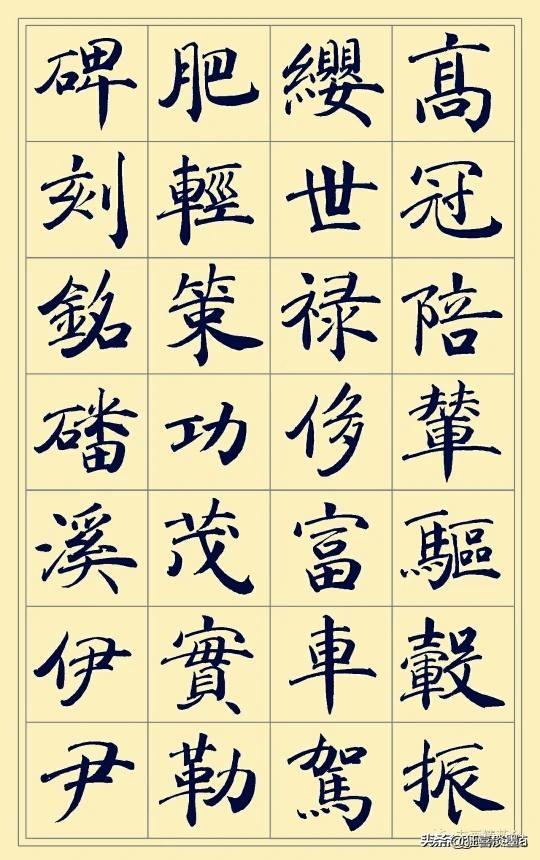 高冠陪輦驅轂振
纓世祿侈富車駕
肥輕策功茂實勒
碑刻銘磻溪伊尹